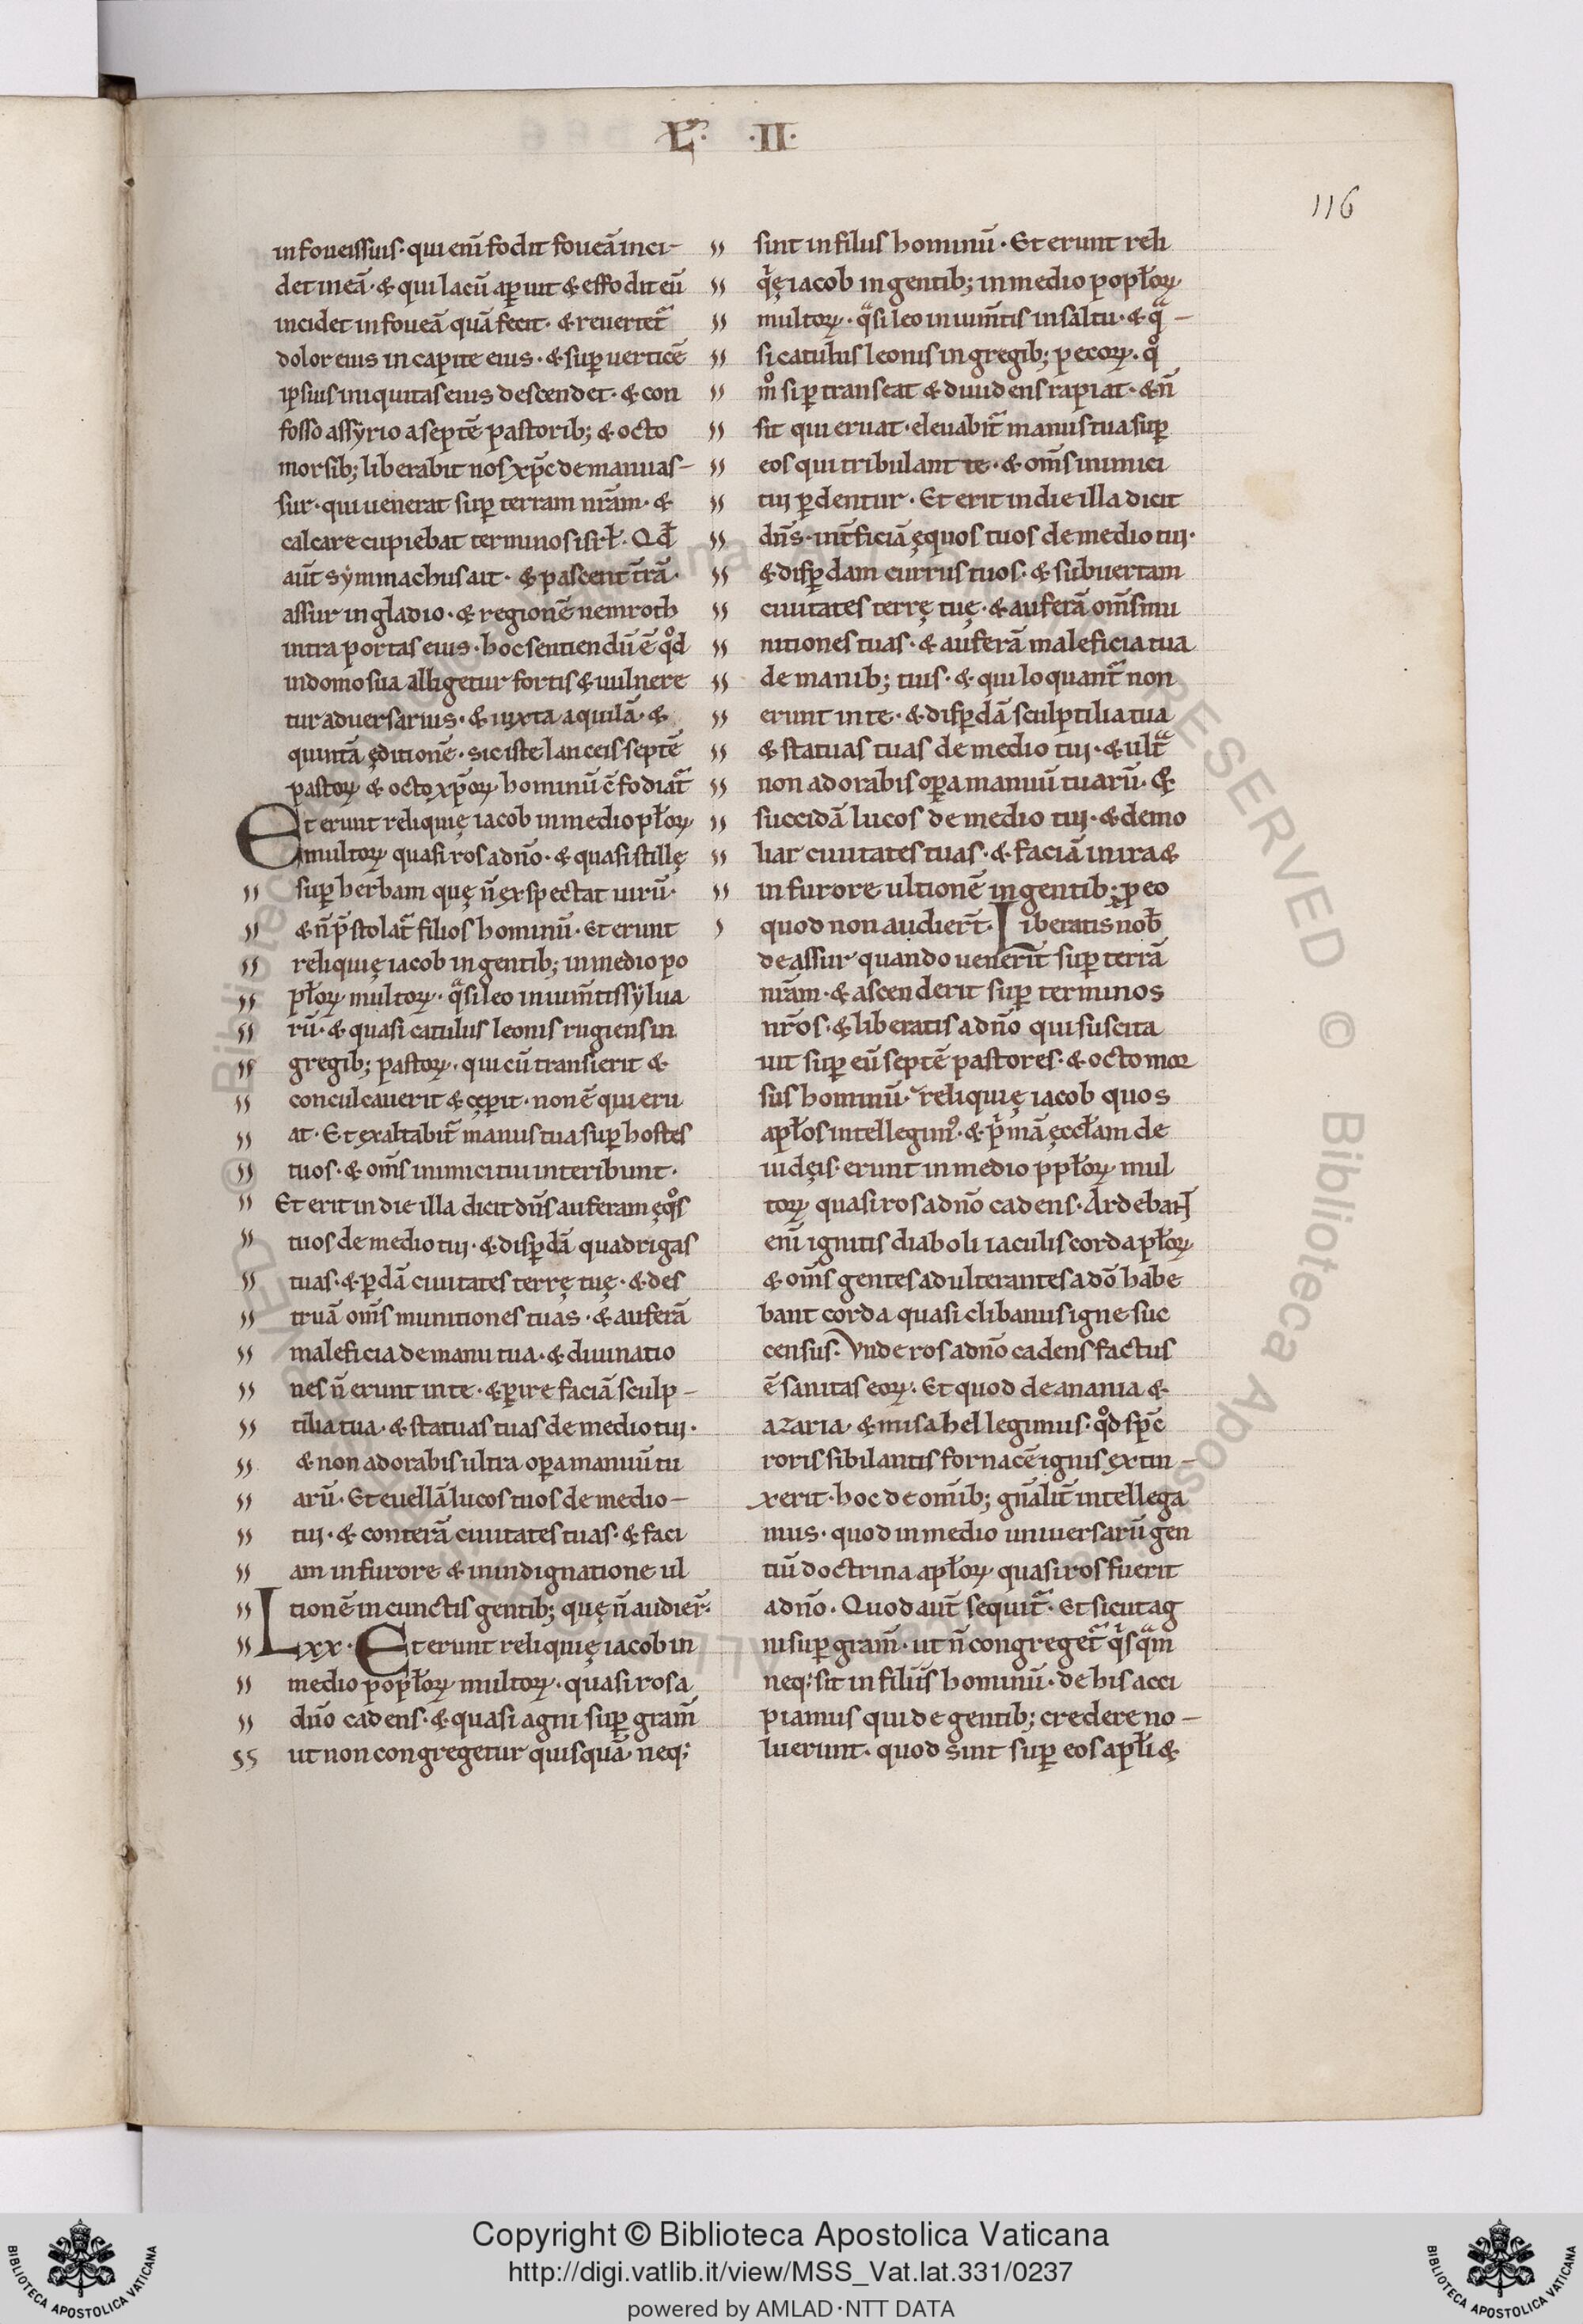 L̃. ·II·
116
in foueissuis· qui eni̅ fodit foueā inci-
det in eā· & qui lacū aꝑuit & effodit eū
incidet in foueā quā fecit· & reuertet᷑
dolor eius in capite eius· & suꝑ uerticē
ipsius iniquitas eius descendet· & con
fosso assyrio a septē pastorib; & octo
morsib; liberabit nos xp̅c de manu as-
sur· qui uenerat suꝑ terram nr̅am· &
calcare cupiebat terminos isrł· Qđ
aut̅ symmachus ait· & pascent t̅rā·
assur in gladio· & regionē nemroth
intra portas eius· hoc sentiendū ē qͦd
in domo sua alligetur fortis & uulnere
tur aduersarius· & iuxta aquilā· &
quintā ęditionē· sic iste lanceis septē
pastoꝝ & octo xp̅oꝝ hominū c̅fodiat᷑
Et erunt reliquię iacob in medio pp̅łoꝝ
multoꝝ quasi ros a dn̅o· & quasi stillę
suꝑ herbam quę n̅ exspectat uirū·
& n̅ p̅stolat᷑ filios hominū· Et erunt
reliquię iacob in gentib; in medio po
płoꝝ multoꝝ· qᷓsi leo in ium̅tis sylua
rū· & quasi catulus leonis rugiens in
gregib; pastoꝝ· qui cū transierit &
conculcauerit & cęꝑit· non ē qui eru
at· Et exaltabit᷑ manus tua suꝑ hostes
tuos· & om̅s inimici tui interibunt·
Et erit in die illa dicit dn̅s auferam ęqͦs
tuos de medio tui· & disꝑdā quadrigas
tuas· & ꝑdā ciuitates terrę tuę· & des
truā om̅s munitiones tuas· & auferā
maleficia de manu tua· & diuinatio
nes n̅ erunt in te· & ꝑire faciā sculp-
tilia tua· & statuas tuas de medio tui·
& non adorabis ultra oꝑa manuū tu
arū· Et euellā lucos tuos de medio-
tui· & conterā ciuitates tuas· & faci
am in furore & in indignatione ul
tionē in cunctis gentib; quę n̅ audier̅·
Lxx· Et erunt reliquię iacob in
medio popłoꝝ multoꝝ· quasi ros a
dn̅o cadens· & quasi agni suꝑ gram̅
ut non congregetur quisquā· neq;
sint in filiis hominū· Et erunt reli
qͥę iacob in gentib; in medio popłoꝝ
multoꝝ· qᷓsi leo in ium̅tis in saltu· & qᷓ-
si catulus leonis in gregib; pecoꝝ· qͦ
mͦ si ꝑtranseat & diuidens rapiat· & n̅
sit qui eruat· eleuabit᷑ manus tua suꝑ
eos qui tribulant te· & om̅s inimici
tui ꝑdentur· Et erit in die illa dicit
dn̅s· int̅ficiā ęquos tuos de medio tui·
& disꝑdam currus tuos· & subuertam
ciuitates terrę tuę· & auferā om̅s mu
nitiones tuas· & auferā maleficia tua
de manib; tuis· & qui loquant᷑ non
erunt in te· & disꝑdā sculptilia tua
& statuas tuas de medio tui· & ultᷓ
non adorabis oꝑa manuū tuarū· &
succidā lucos de medio tui· & demo
liar ciuitates tuas· & faciā in ira &
in furore ultionē in gentib; p eo
quod non audier̅t· Liberatis nob̅
de assur quando uenerit̅ suꝑ terrā
nr̅am· & ascenderit suꝑ terminos
nr̅os· & liberatis a dn̅o qui suscita
uit suꝑ eū septē pastores· & octo mor
sus hominū· reliquię iacob quos
apłos intellegim᷒· & pͥmā ęccłam de
iudęis· erunt in medio ppłoꝝ mul
toꝝ quasi ros a dn̅o cadens· Ardebant
eni̅ ignitis diaboli iaculis corda ppłoꝝ
& om̅s gentes adulterantes a dō habe
bant corda quasi clibanus igne suc
census· Vnde ros a dn̅o cadens factus
ē sanitas eoꝝ· Et quod de anania &
azaria· & misahel legimus· qͦd sp̅c
roris sibilantis fornacē ignis extin-
xerit· hoc de om̅ib; gn̅alit̅ intellega
mus· quod in medio uniuersarū gen
tiū doctrina apłoꝝ quasi ros fuerit
a dn̅o· Quod aut̅ sequit᷑· Et sicut ag
ni suꝑ gram̅· ut n̅ congreget᷑ qͥsqᷓm
neq; sit in filiis hominū· de his acci
piamus qui de gentib; credere no-
luerunt· quod sint suꝑ eos apłi &
Copyright © Biblioteca Apostolica Vaticana
http://digi.vatlib.it/view/MSS_Vat.lat.331/0237
powered by AMLAD·NTT DATA
BIBLIOTECA APOSTOLICA VATICANA
BIBLIOTECA APOSTOLICA VATICANA